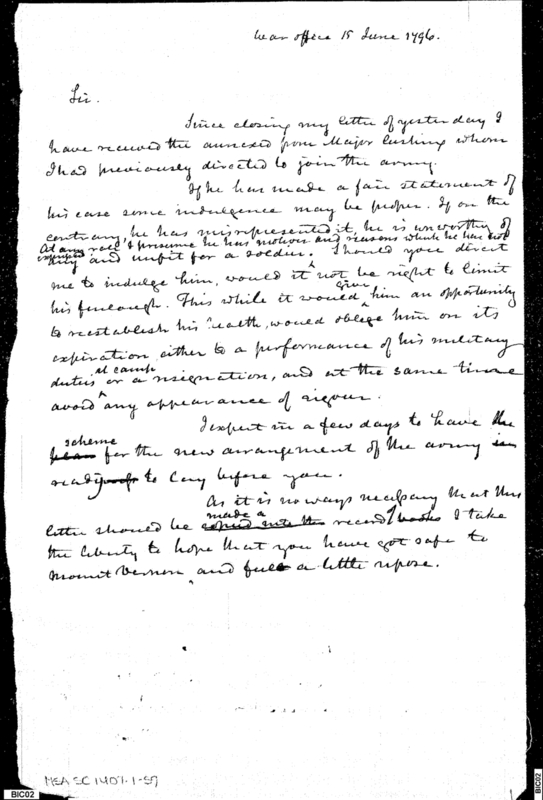 War office 15 June 1796.
Sir.
Since closing my letter of yesterday I
have received the annexed from Major Cushing whom
I had previously directed to join the army.
If he has made a fair statement of
his case some indulgence may be proper. If on the
contrary, he has misrepresented it, he is unworthy of
At any rate I presume he has motives and reasons which he has not
any and unfit for a soldier. Should you direct
me to indulge him, would it not be right to limit
his furlough. This while it would give him an opportunity
to reestablish his health, would oblige him on its
expiration either to a performance of his military
duties at camp or a resignation, and at the same time
avoid any appearance of rigour.
I expect in a few days to have the
scheme
plan for the new arrangement of the army in
ready to lay before you.
As it is no ways necessary that this
made a
letter should be copied into the record books I take
the liberty to hope that you have got safe to
Mount Vernon and feel a little repose.
MSA SC 1407-1-57
BIC02
BIC02